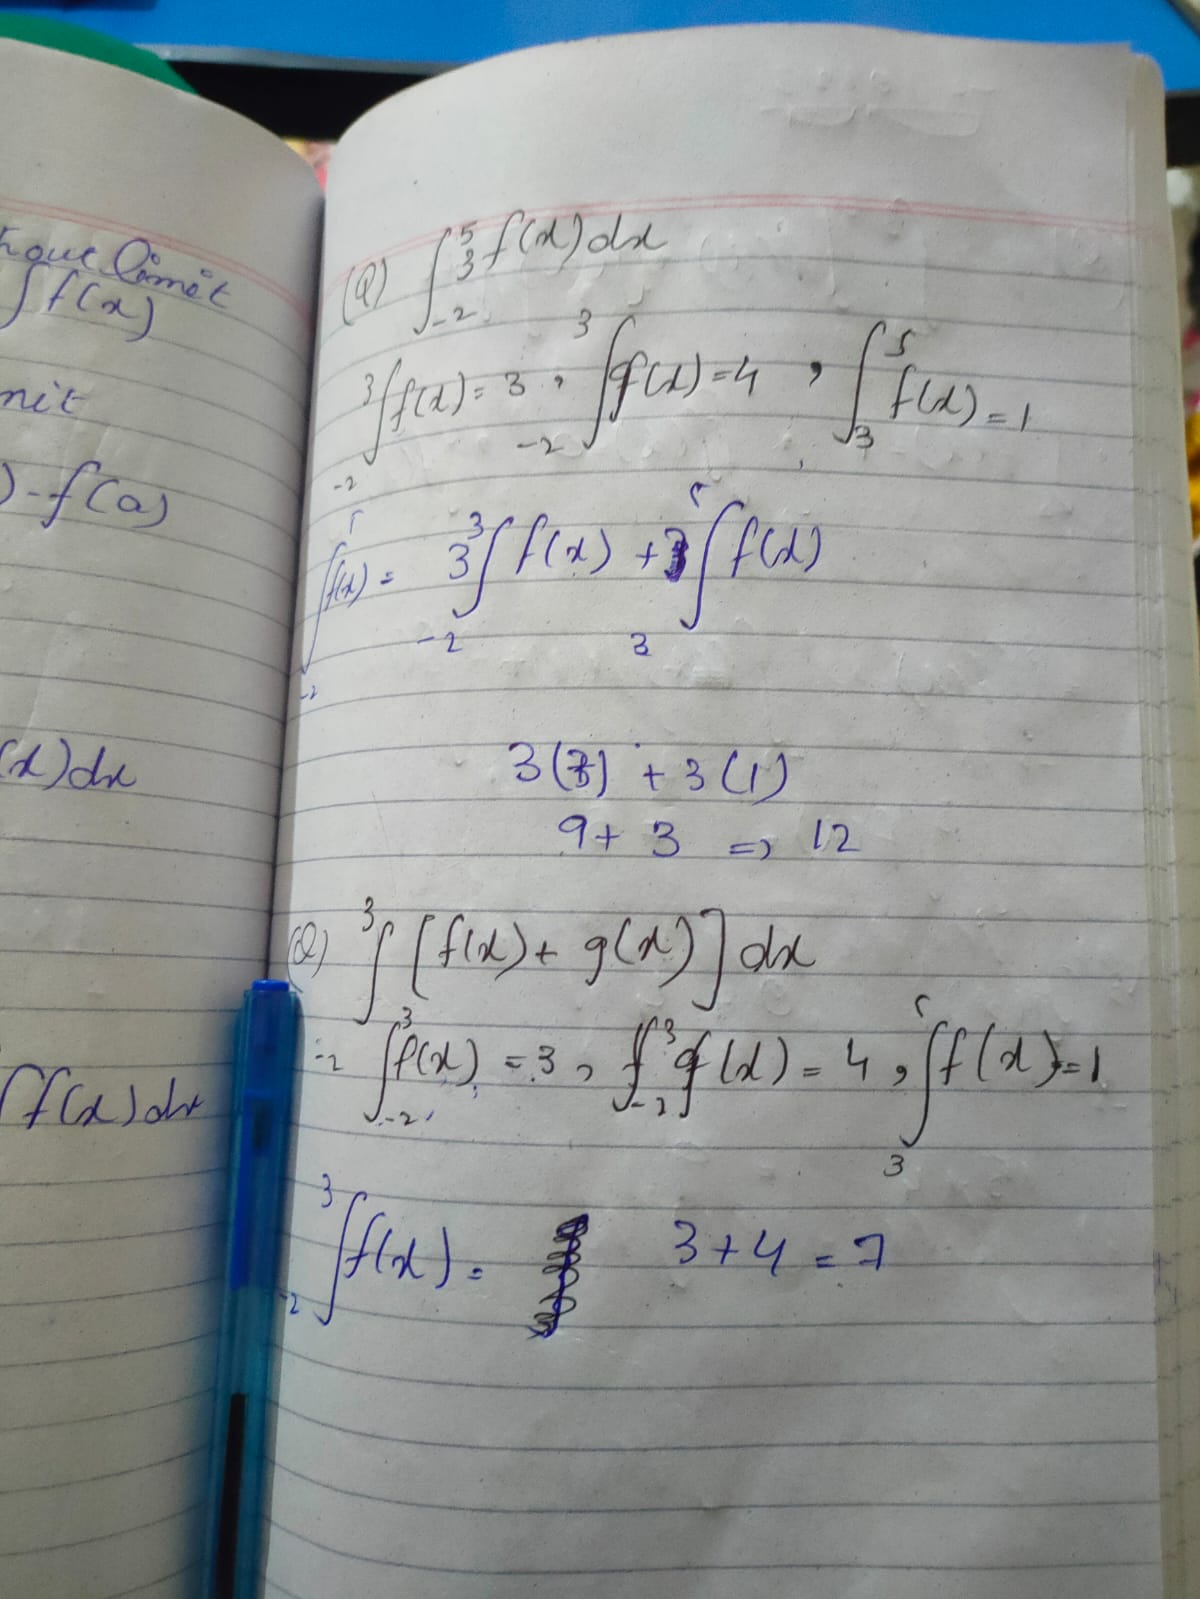 que limit
∫ f(x)
mit
) - f(a)
(x) dx
∫ f(x) dx
(Q) ∫₋₂⁵ 3 f(x) dx
∫₋₂³ f(x) = 3 , ∫₋₂³ g(x) = 4 , ∫₃⁵ f(x) = 1
∫₋₂⁵ f(x) = 3 ∫₋₂³ f(x) + 3 ∫₃⁵ f(x)
3(3) + 3(1)
9 + 3 => 12
(Q) ∫₋₂³ [f(x) + g(x)] dx
∫₋₂³ f(x) = 3 , ∫₋₂³ g(x) = 4 , ∫₃⁵ f(x) = 1
∫₋₂³ f(x) = 3 + 4 = 7